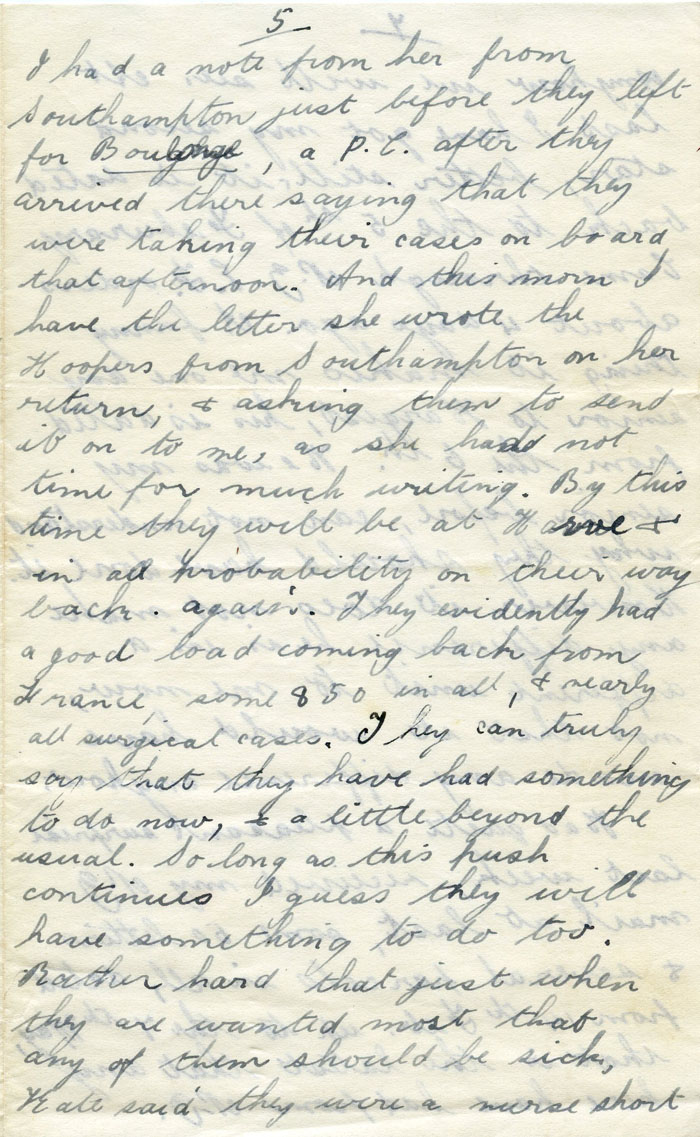 5
I had a note from her from
Southampton just before they left
for Boulogne, a P.C. after they
arrived there saying that they
were taking their cases on board
that afternoon. And this morn I
have the letter she wrote the
Hoopers from Southampton on her
return, & asking them to send
it on to me, as she had not
time for much writing. By this
time they will be at Harve &
in all probability on their way
back. again. They evidently had
a good load coming back from
France, some 850 in all, & nearly
all surgical cases. They can truly
say that they have had something
to do now, & a little beyond the
usual. So long as this push
continues I guess they will
have something to do too.
Rather hard that just when
they are wanted most that
any of them should be sick,
Kate said they were a nurse short